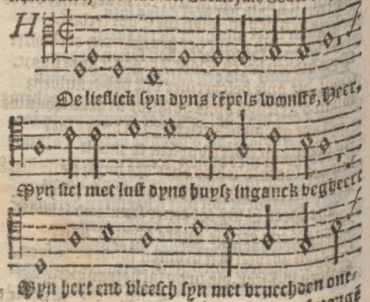 H
Oe lieflick syn dyns tẽpels woonstẽ, Heer,
Myn siel met lust dyns huysz inganck begheert
Myn hert end vleesch syn met vruechden ont-